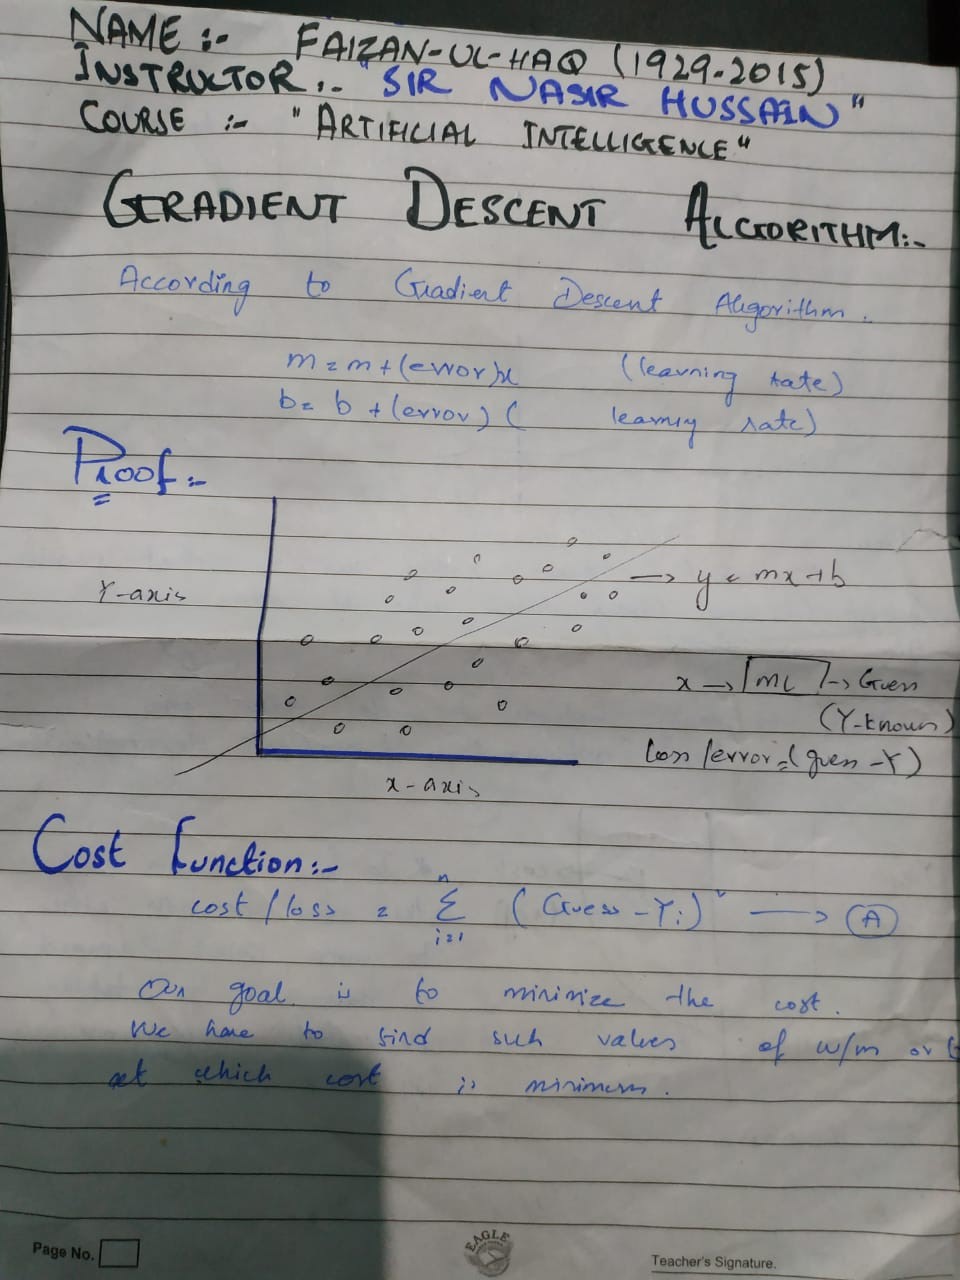 NAME :- FAIZAN-UL-HAQ (1929-2015)
INSTRUCTOR :- "SIR NASIR HUSSAIN"
COURSE :- "ARTIFICIAL INTELLIGENCE"
GRADIENT DESCENT ALGORITHM:-
According to Gradient Descent Algorithm.
m = m + (error)x (learning rate)
b = b + (error) ( learning rate)
Proof :-
Y-axis
→ y = mx+b
x → ML → Guess
(Y-known)
loss/error = (guess - Y)
x-axis
Cost function:-
cost / loss = n Σ i=1 (Guess - Yi)² → A
Our goal is to minimize the cost.
We have to find such values of w/m or b
at which cost is minimum.
Page No.
EAGLE
Teacher's Signature.